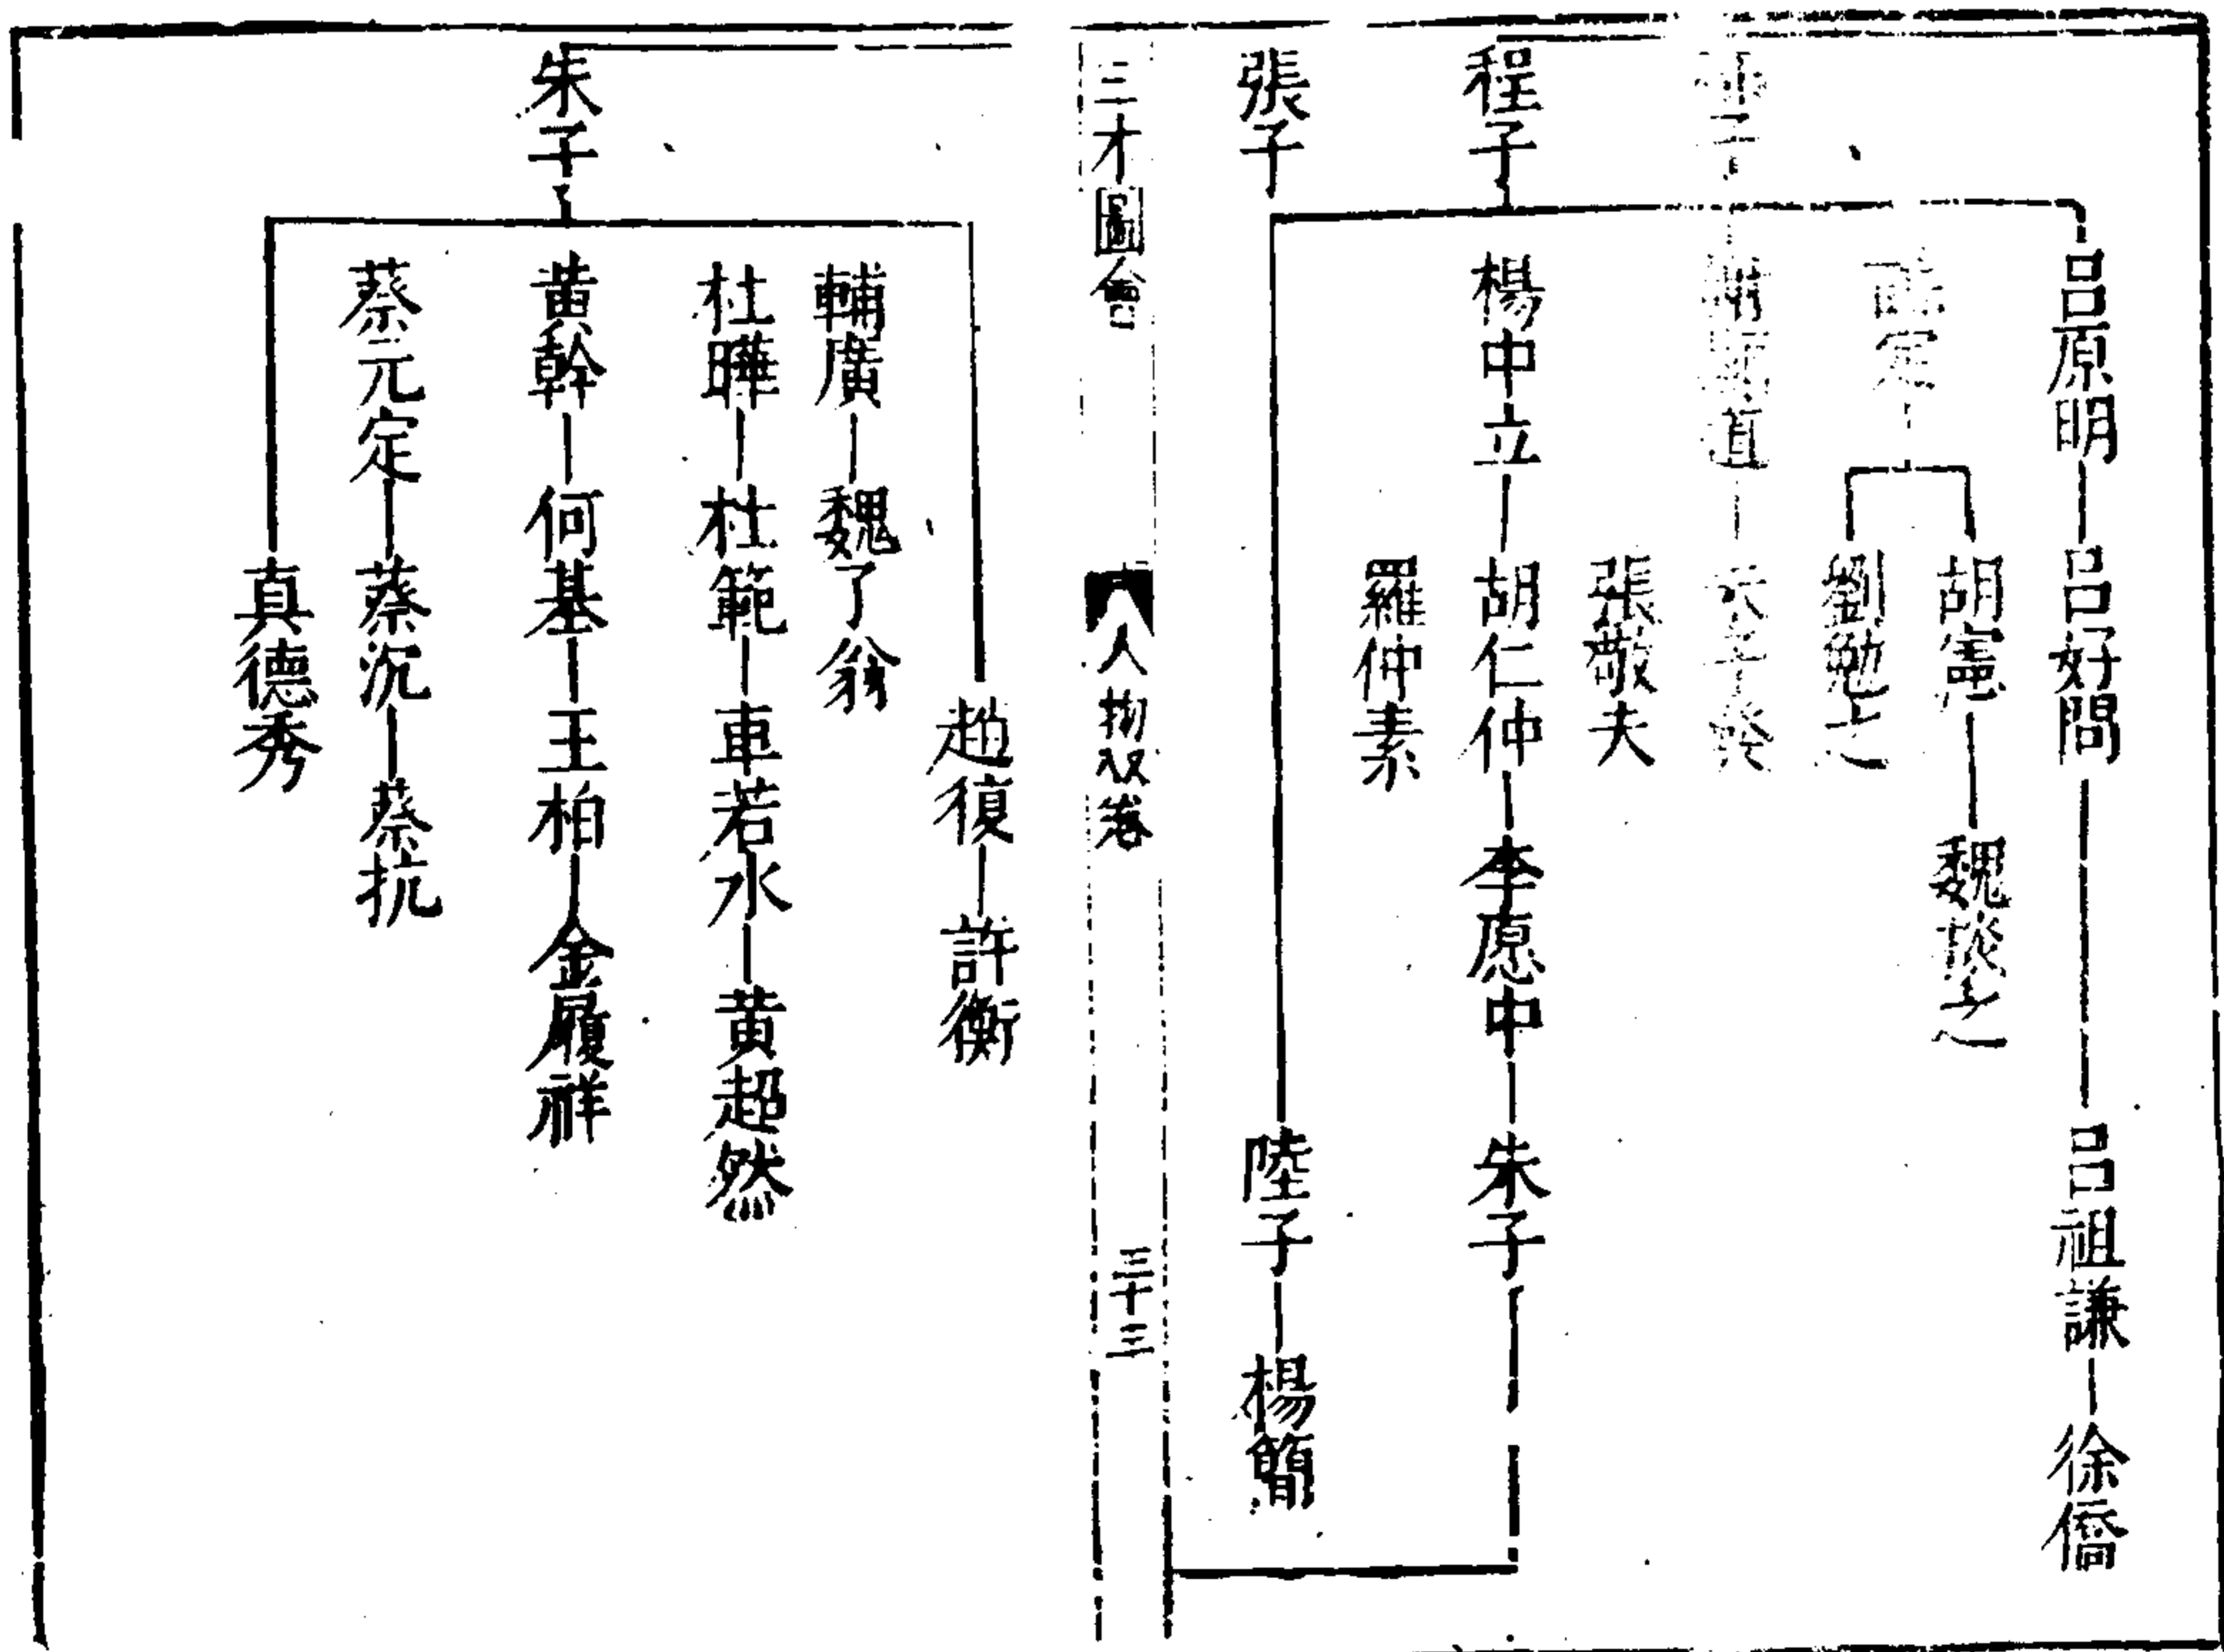 呂原明 呂好問 呂祖謙 徐僑
胡憲 魏掞之
劉勉之
張敬夫
程子 楊中立 胡仁仲 李愿中 朱子
羅仲素
張子 陸子 楊簡
三才圖會 人物双卷 三十三
趙復 許衡
輔廣 魏了翁
杜曄 杜範 車若水 黃超然
朱子 黃幹 何基 王柏 金履祥
蔡元定 蔡沉 蔡抗
真德秀